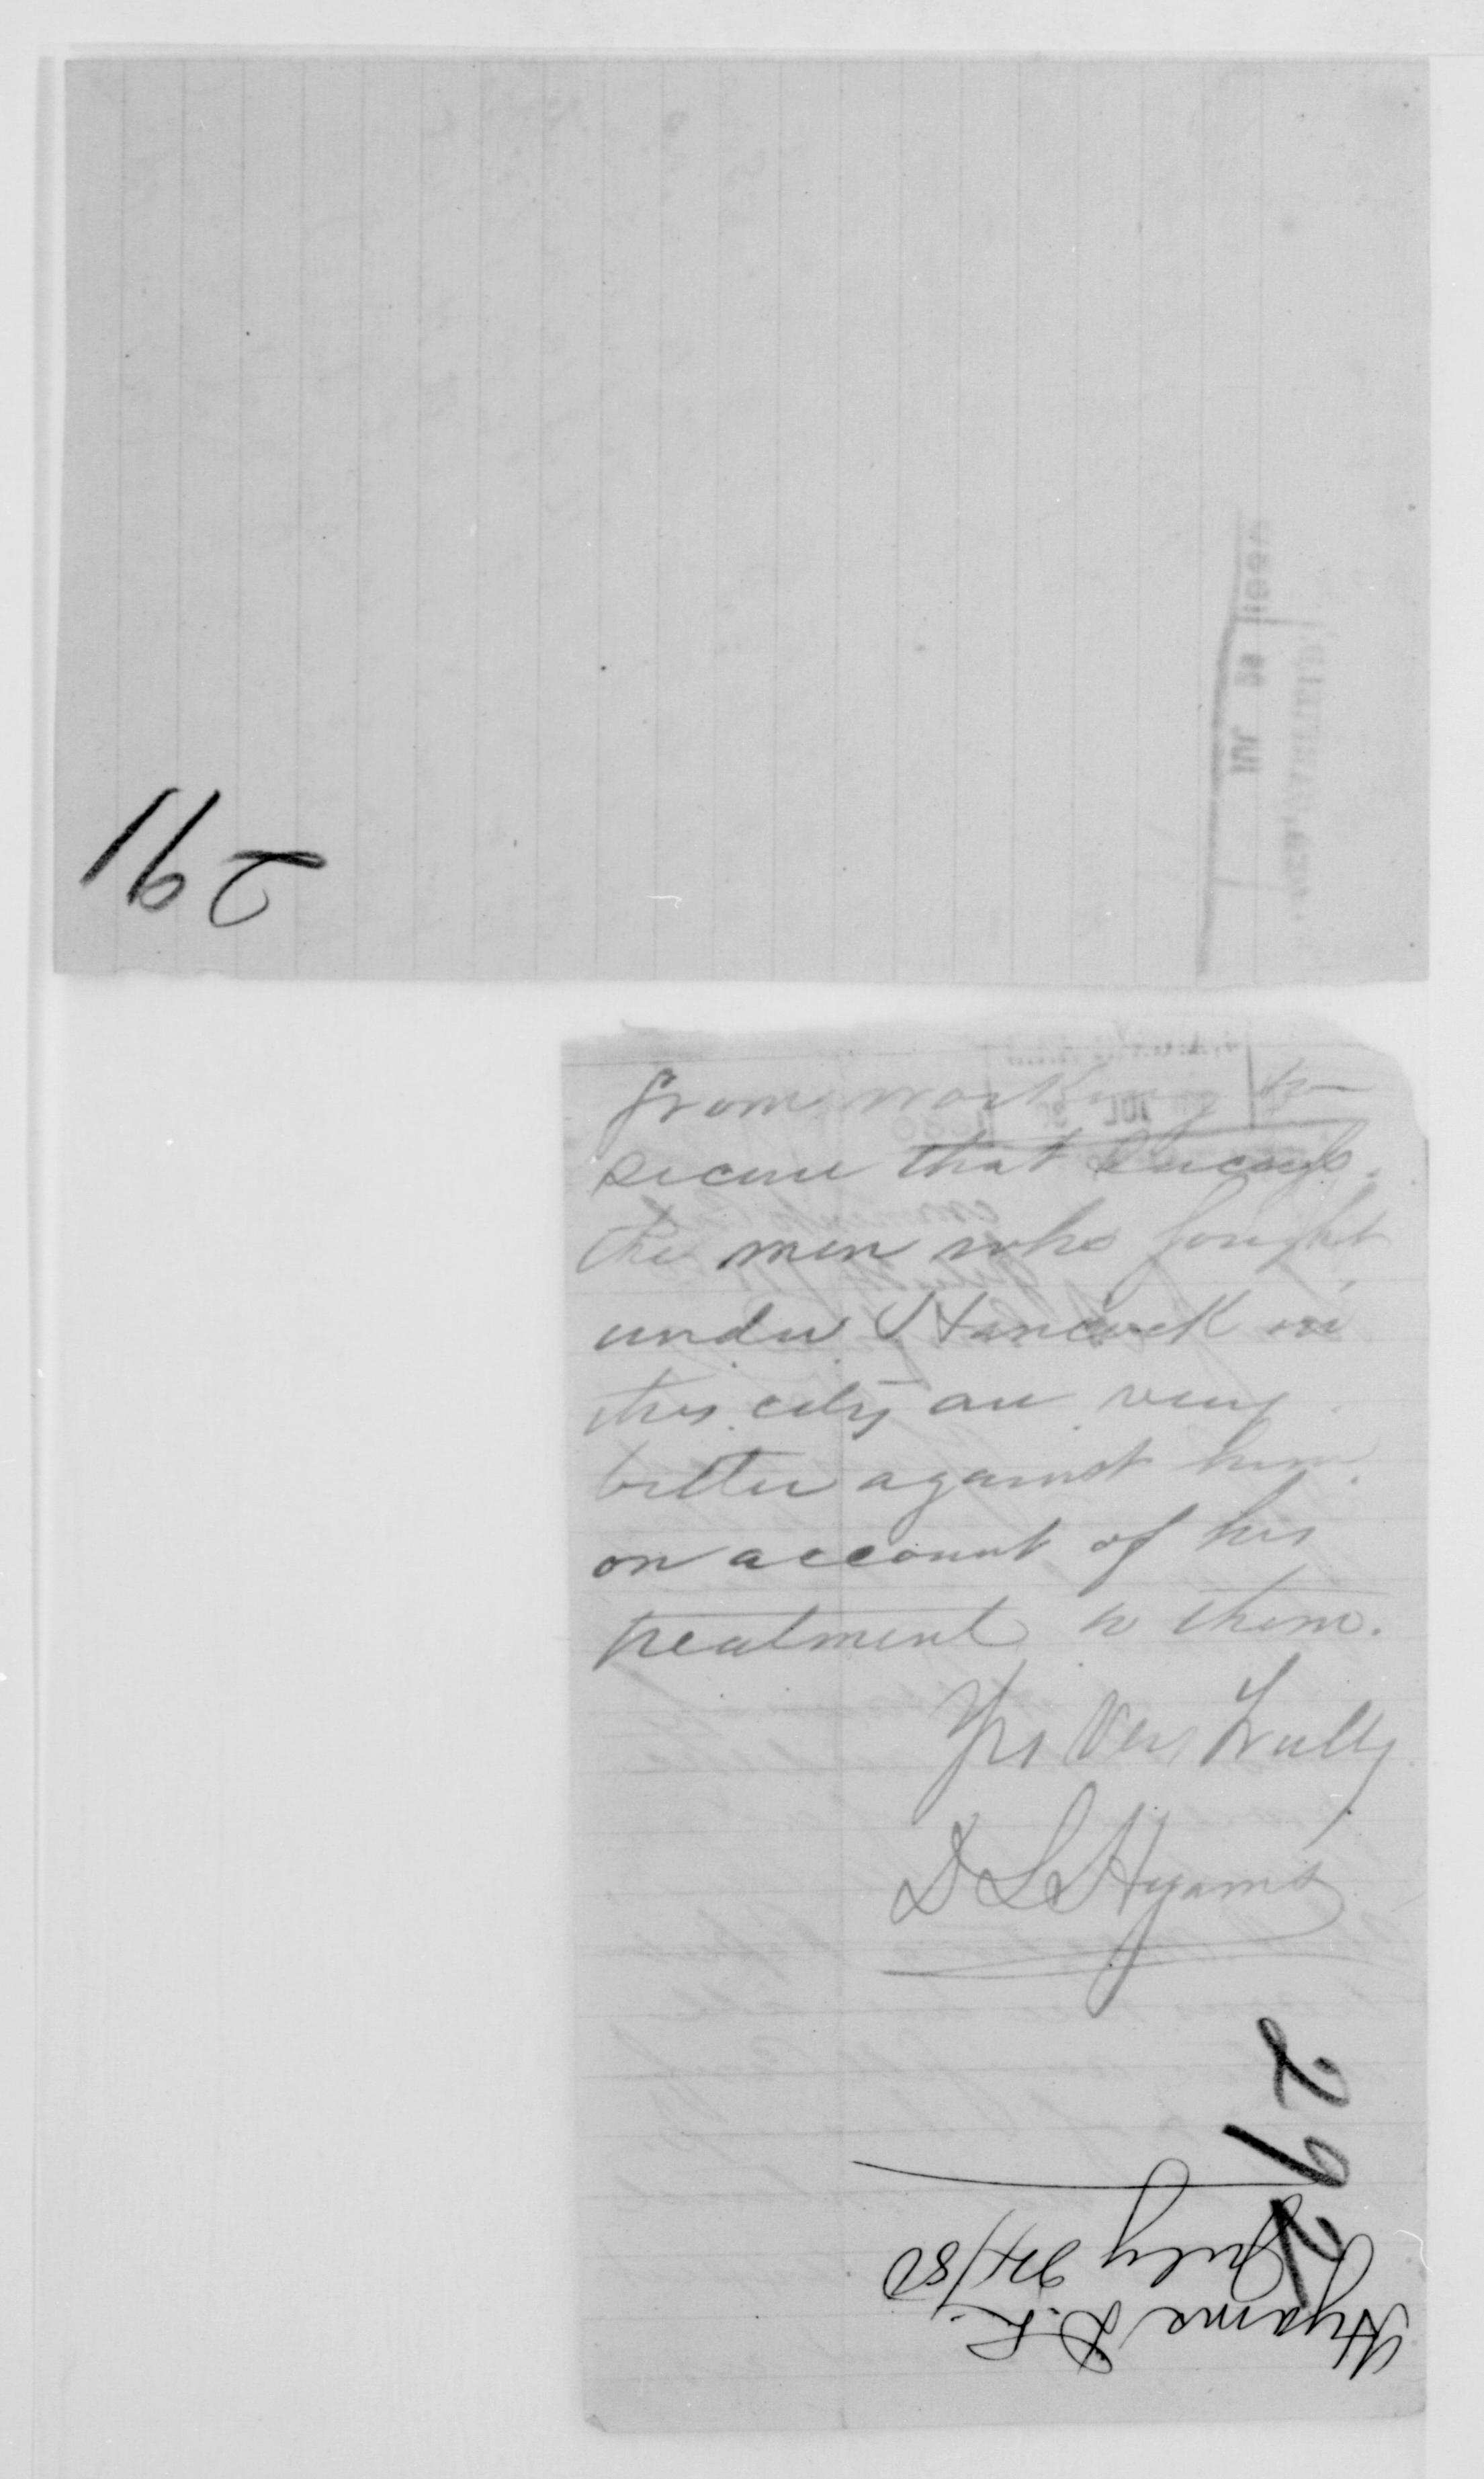 291
from working to
secure that success.
the men who fought
under Hancock in
this city are very
bitter against him.
on account of his
treatment to them.
Yrs Very Trully
D L Hyams
292
Hyams D. L.
July 24/80